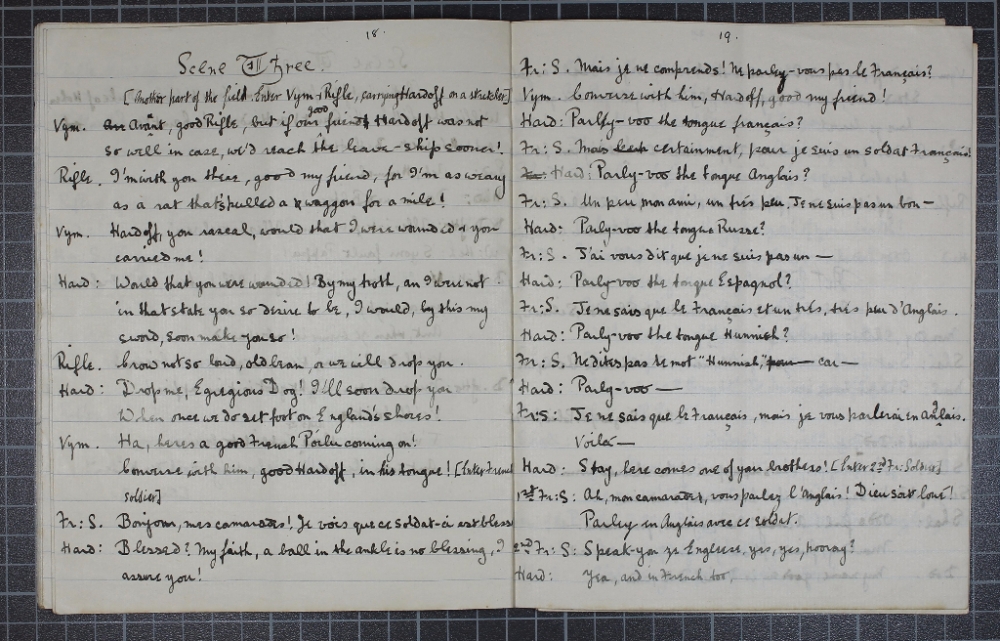 18.
Scene Three.
[Another part of the field. Enter Vym & Rifle, carrying Hardoff on a stretcher]
Vym. Avant, good Rifle, but if our good friend Hardoff was not
so well in case, we'd reach the leave-ship sooner!
Rifle. I'm with you there, good my friend, for I'm as weary
as a rat that's pulled a waggon for a mile!
Vym. Hardoff, you rascal, would that I were wounded & you
carried me!
Hard: Would that you were wounded! By my troth, an I were not
in that state you so desire to be, I would, by this my
sword, soon make you so!
Rifle. Crow not so loud, old bran, or we will drop you.
Hard: Drop me, Egregious Dog! I'll soon drop you
When once we do set foot on England's shores!
Vym. Ha, here's a good French Poilu coming on!
Converse with him, good Hardoff, in his tongue! [Enter French
soldier]
Fr: S. Bonjour, mes camarades! Je vois que ce soldat-ci est blessé
Hard: Blessed? My faith, a ball in the ankle is no blessing, I
assure you!
19.
Fr: S. Mais je ne comprends! Ne parley-vous pas le Français?
Vym. Converse with him, Hardoff, good my friend!
Hard: Parley-voo the tongue français?
Fr: S. Mais certainment, pour je suis un soldat Français!
Hard: Parly-voo the tongue Anglais?
Fr: S. Un peu mon ami, un trés peu. Je ne suis pas un bon —
Hard: Parly-voo the tongue Russe?
Fr: S. J'ai vous dit que je ne suis pas un —
Hard: Parly-voo the tongue Espagnol?
Fr: S. Je ne sais que le Français et un trés, trés peu d'Anglais.
Hard: Parly-voo the tongue Hunnish?
Fr: S. Ne dites pas le mot "Hunnish" pour — car —
Hard: Parly-voo —
Fr: S: Je ne sais que le Français, mais je vous parlerai en Anglais.
Voilá —
Hard: Stay, here comes one of your brothers! [Enter 2nd Fr: Soldier]
1st Fr: S: Ah, mon camarades, vous parley l'Anglais! Dieu soit loué!
Parley en Anglais avec ce soldat.
2nd Fr: S: Speak-you ze Engleese, yes, yes, hooray?
Hard: Yea, and in French too,